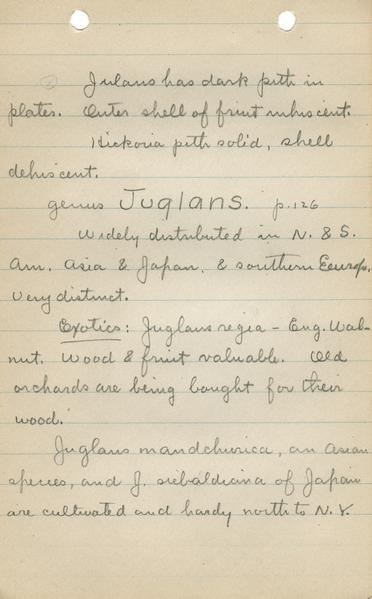 Julans has dark pith in
plates. Outer shell of fruit inhiscent.
Hickoria pith solid, shell
dehiscent.
genus Juglans. p.126
Widely distributed in N. & S.
Am. Asia & Japan, & southern Europe,
Very distinct.
Exotics: Juglans regia - Eng. Wal-
nut. Wood & fruit valuable. Old
orchards are being bought for their
wood.
Juglans mandchurica, an Asian
species, and J. siebaldiana of Japan
are cultivated and hardy north to N.Y.